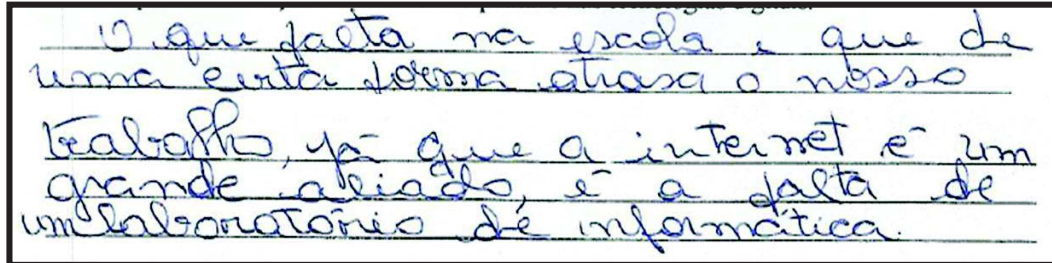 O que falta na escola e que de
uma certa forma atrasa o nosso
trabalho, já que a internet é um
grande aliado, é a falta de
um laboratório de informática.